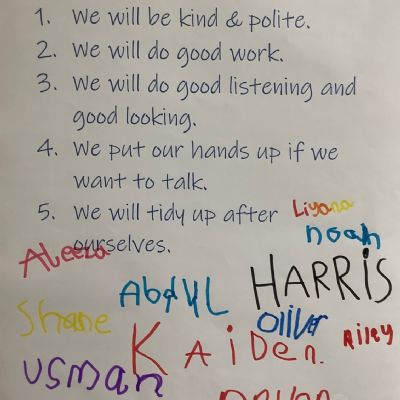 1. We will be kind & polite.
2. We will do good work.
3. We will do good listening and
good looking.
4. We put our hands up if we
want to talk.
5. We will tidy up after
ourselves.
Liyana
noah
Aleeza
HARRiS
Abdul
Shane
oliver
Riley
KAiDen.
usman